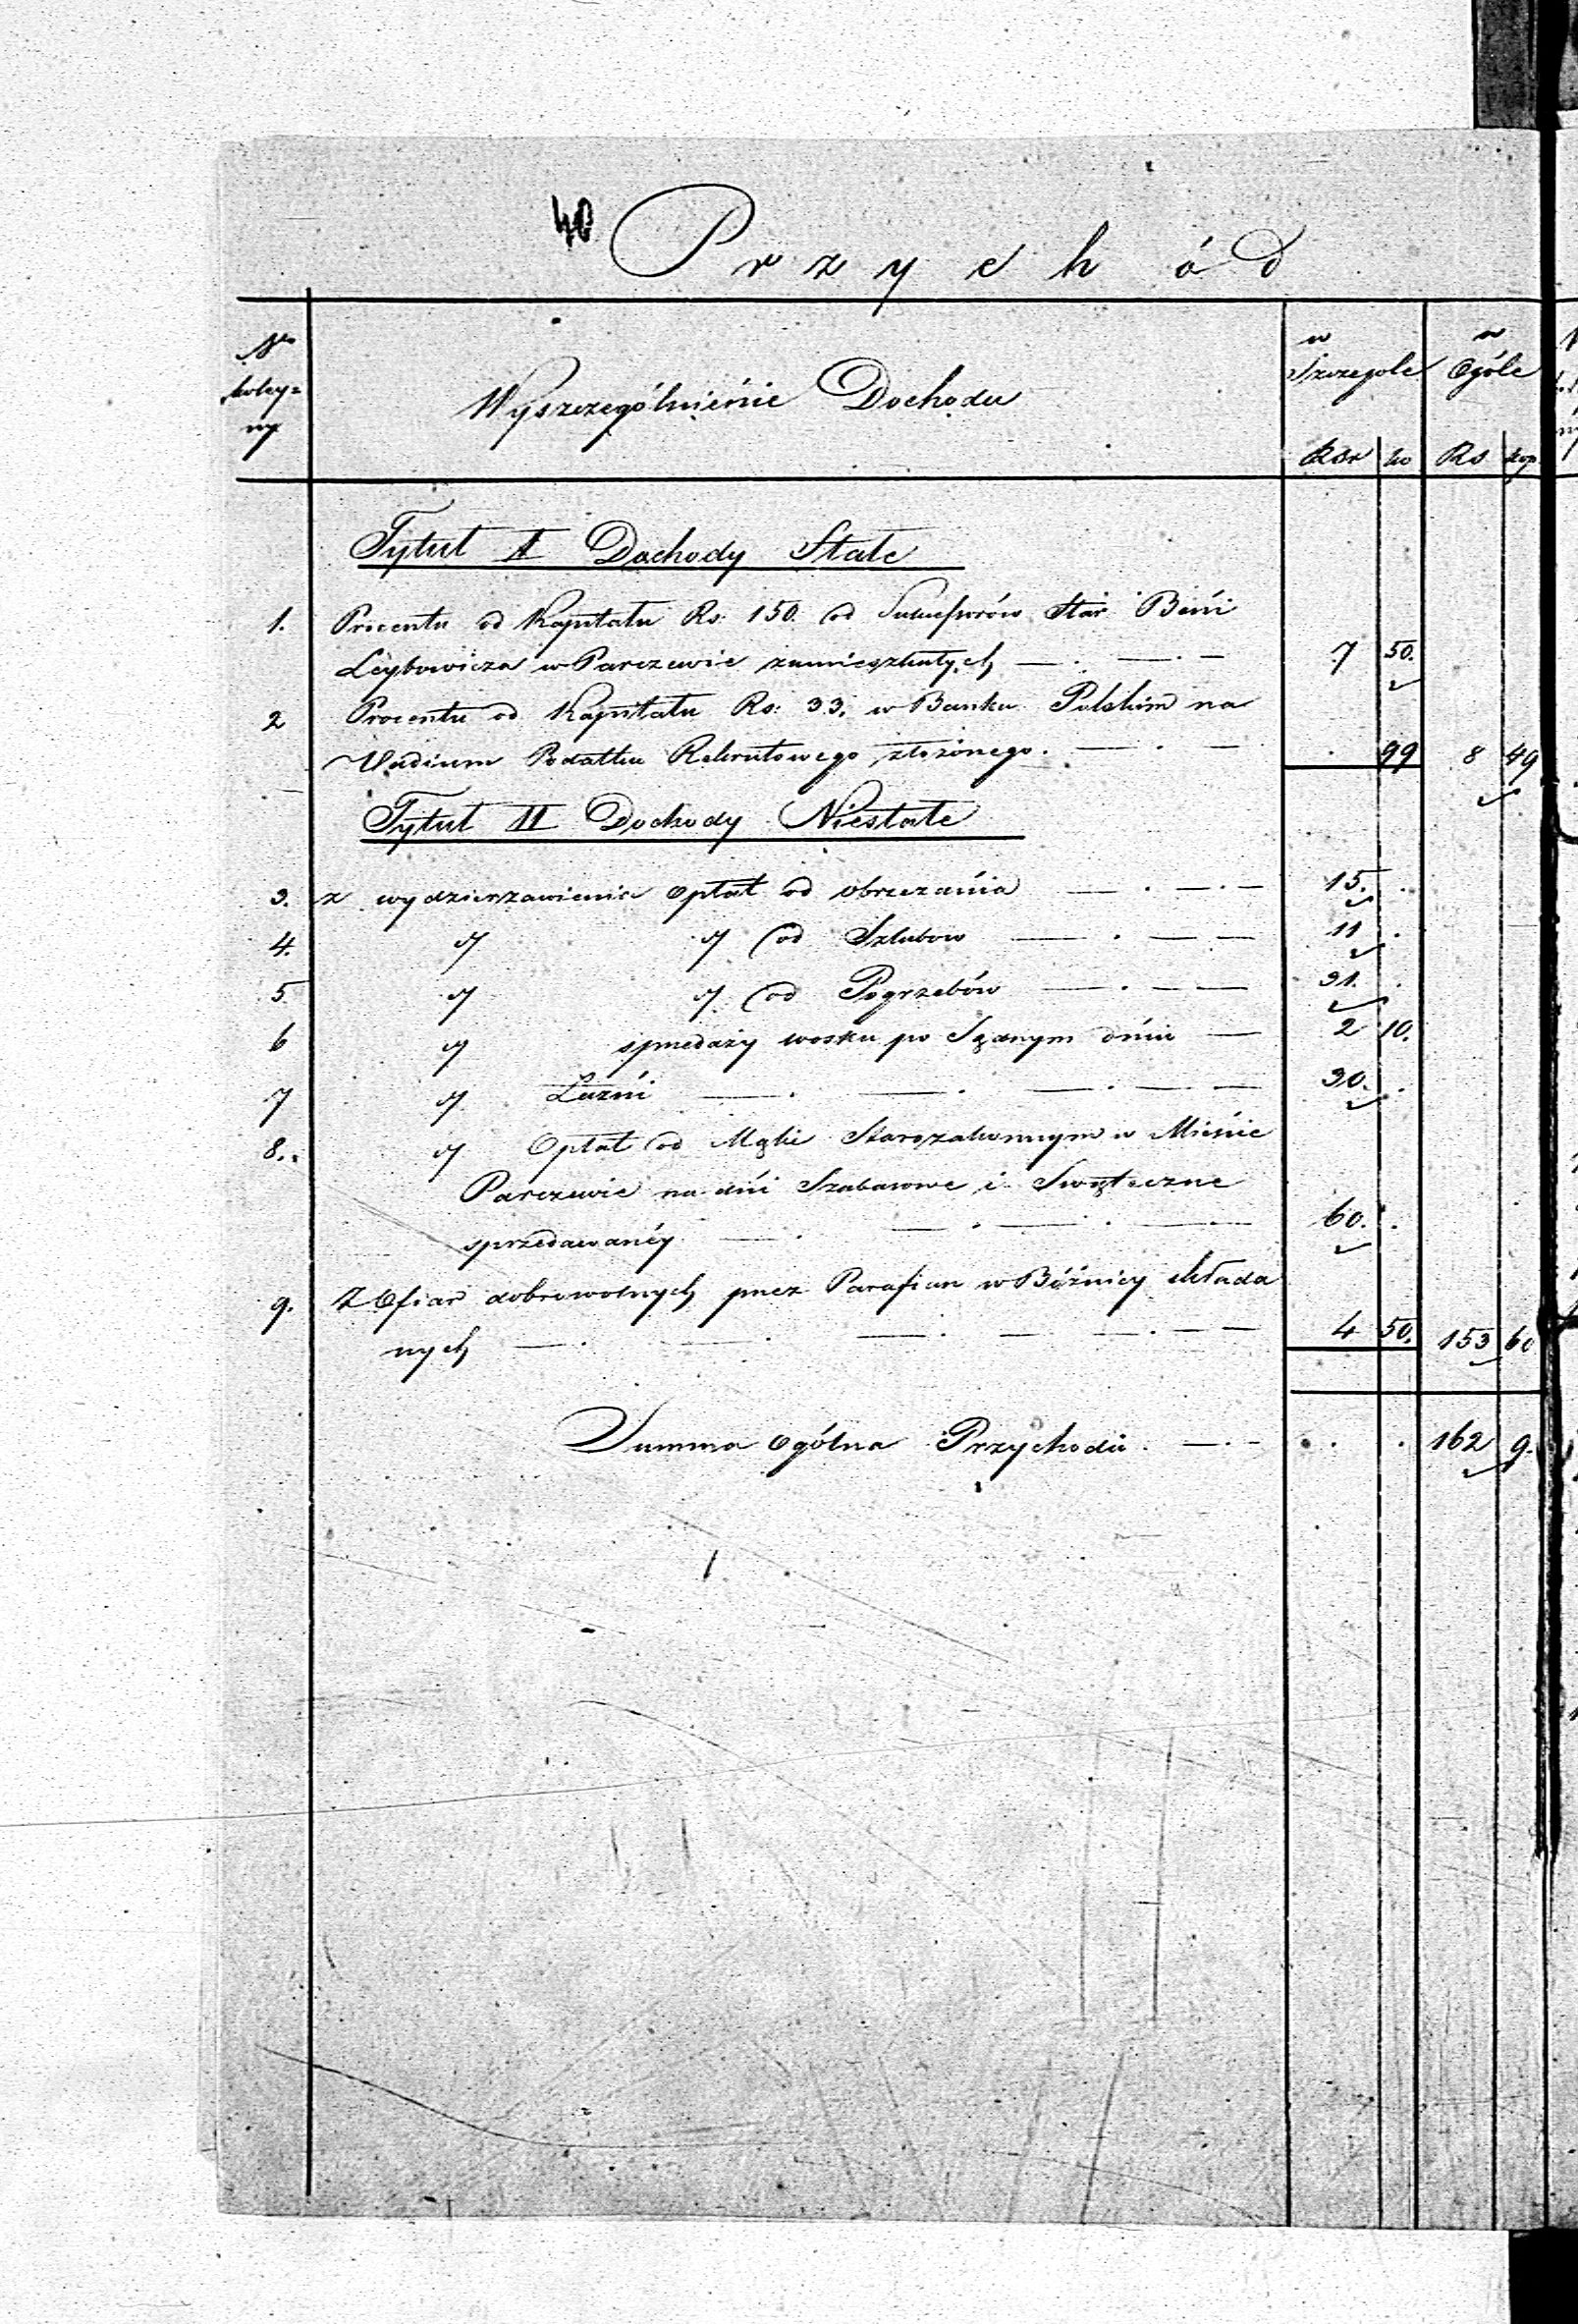 40
Przychód
No koley= ny
Wyszczególnienie Dochodu
w Szczegole
w Ogóle
Rsr ko Rs kop
Tytuł I Dochody Stałe
1. Procentu od Kapitału Rs: 150. od Sukcessorów Star Beńi
Leybowicza w Parczewie zamieszkałych 7 50.
2 Procentu od Kapitału Rs: 33, w Banku Polskim na
Vadium Podatku Rekrutowego złożonego. . 99 8 49
Tytuł II Dochody Niestałe
3. z wydzierzawienia opłat od obrzezania 15. .
4. " " od Szlubow 11 .
5 " " od Pogrzebów 31. .
6 " spzedaży wosku po Sądnym dniu 2 10.
7 " Łaźni 30. .
8. " Opłat od Mąki Starozakonnym w Mieście
Parczewie na dni Szabasowe i Swąteczne
sprzedawanéy 60. .
9. Z Ofiar dobrowolnych przez Parafian w Bóźnicy składa
nych 4 50. 153 60
Summa ogólna Przychodu . . 162 9.